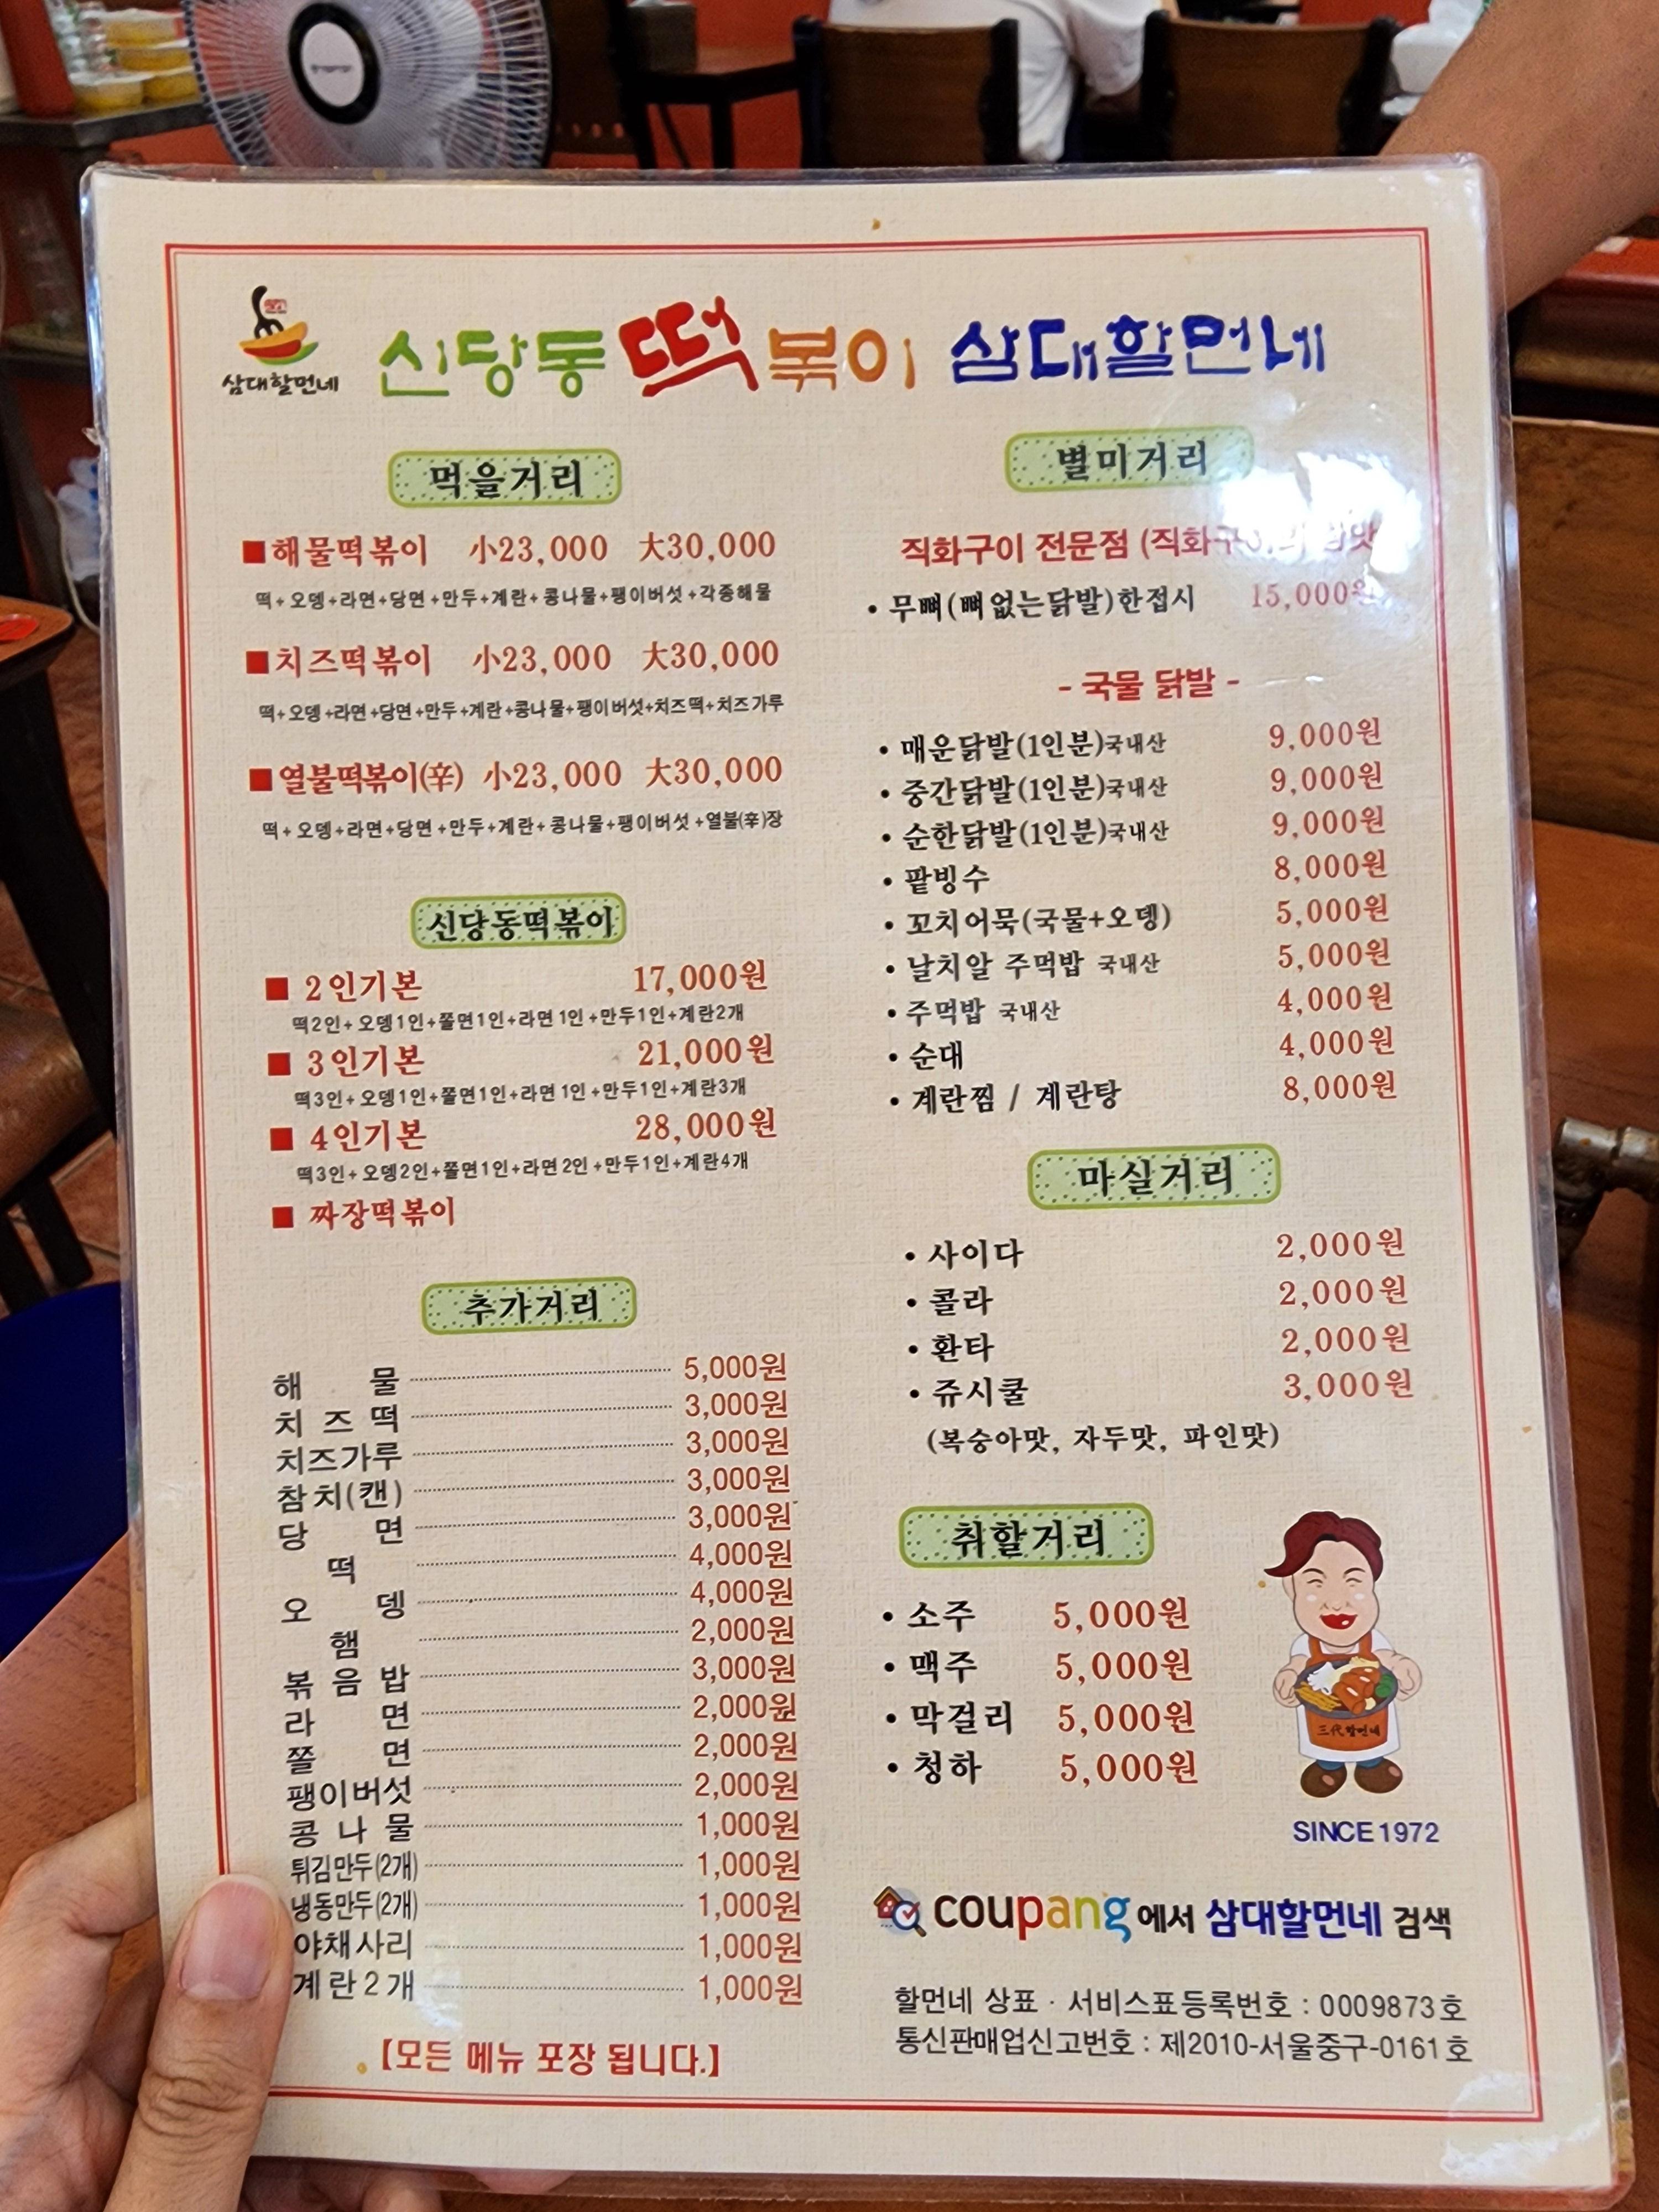 삼대할먼네
신당동 떡볶이 삼대할먼네
먹을거리
■해물떡볶이 小23,000 大30,000
떡+오뎅+라면+당면+만두+계란+콩나물+팽이버섯+각종해물
■치즈떡볶이 小23,000 大30,000
떡+오뎅+라면+당면+만두+계란+콩나물+팽이버섯+치즈떡+치즈가루
■열불떡볶이(辛) 小23,000 大30,000
떡+오뎅+라면+당면+만두+계란+콩나물+팽이버섯+열불(辛)장
신당동떡볶이
■ 2인기본 17,000원
떡2인+오뎅1인+쫄면1인+라면1인+만두1인+계란2개
■ 3인기본 21,000원
떡3인+오뎅1인+쫄면1인+라면1인+만두1인+계란3개
■ 4인기본 28,000원
떡3인+오뎅2인+쫄면1인+라면2인+만두1인+계란4개
■ 짜장떡볶이
추가거리
해 물 5,000원
치 즈 떡 3,000원
치즈가루 3,000원
참치(캔) 3,000원
당 면 3,000원
떡 4,000원
오 뎅 4,000원
햄 2,000원
볶 음 밥 3,000원
라 면 2,000원
쫄 면 2,000원
팽이버섯 2,000원
콩 나 물 1,000원
튀김만두(2개) 1,000원
냉동만두(2개) 1,000원
야채사리 1,000원
계란2개 1,000원
【모든 메뉴 포장 됩니다.】
별미거리
직화구이 전문점
• 무뼈(뼈없는닭발)한접시 15,000원
- 국물 닭발 -
• 매운닭발(1인분)국내산 9,000원
• 중간닭발(1인분)국내산 9,000원
• 순한닭발(1인분)국내산 9,000원
• 팥빙수 8,000원
• 꼬치어묵(국물+오뎅) 5,000원
• 날치알 주먹밥 국내산 5,000원
• 주먹밥 국내산 4,000원
• 순대 4,000원
• 계란찜 / 계란탕 8,000원
마실거리
• 사이다 2,000원
• 콜라 2,000원
• 환타 2,000원
• 쥬시쿨 3,000원
(복숭아맛, 자두맛, 파인맛)
취할거리
• 소주 5,000원
• 맥주 5,000원
• 막걸리 5,000원
• 청하 5,000원
三代할먼네
SINCE 1972
coupang에서 삼대할먼네 검색
할먼네 상표 · 서비스표등록번호 : 0009873호
통신판매업신고번호 : 제2010-서울중구-0161호